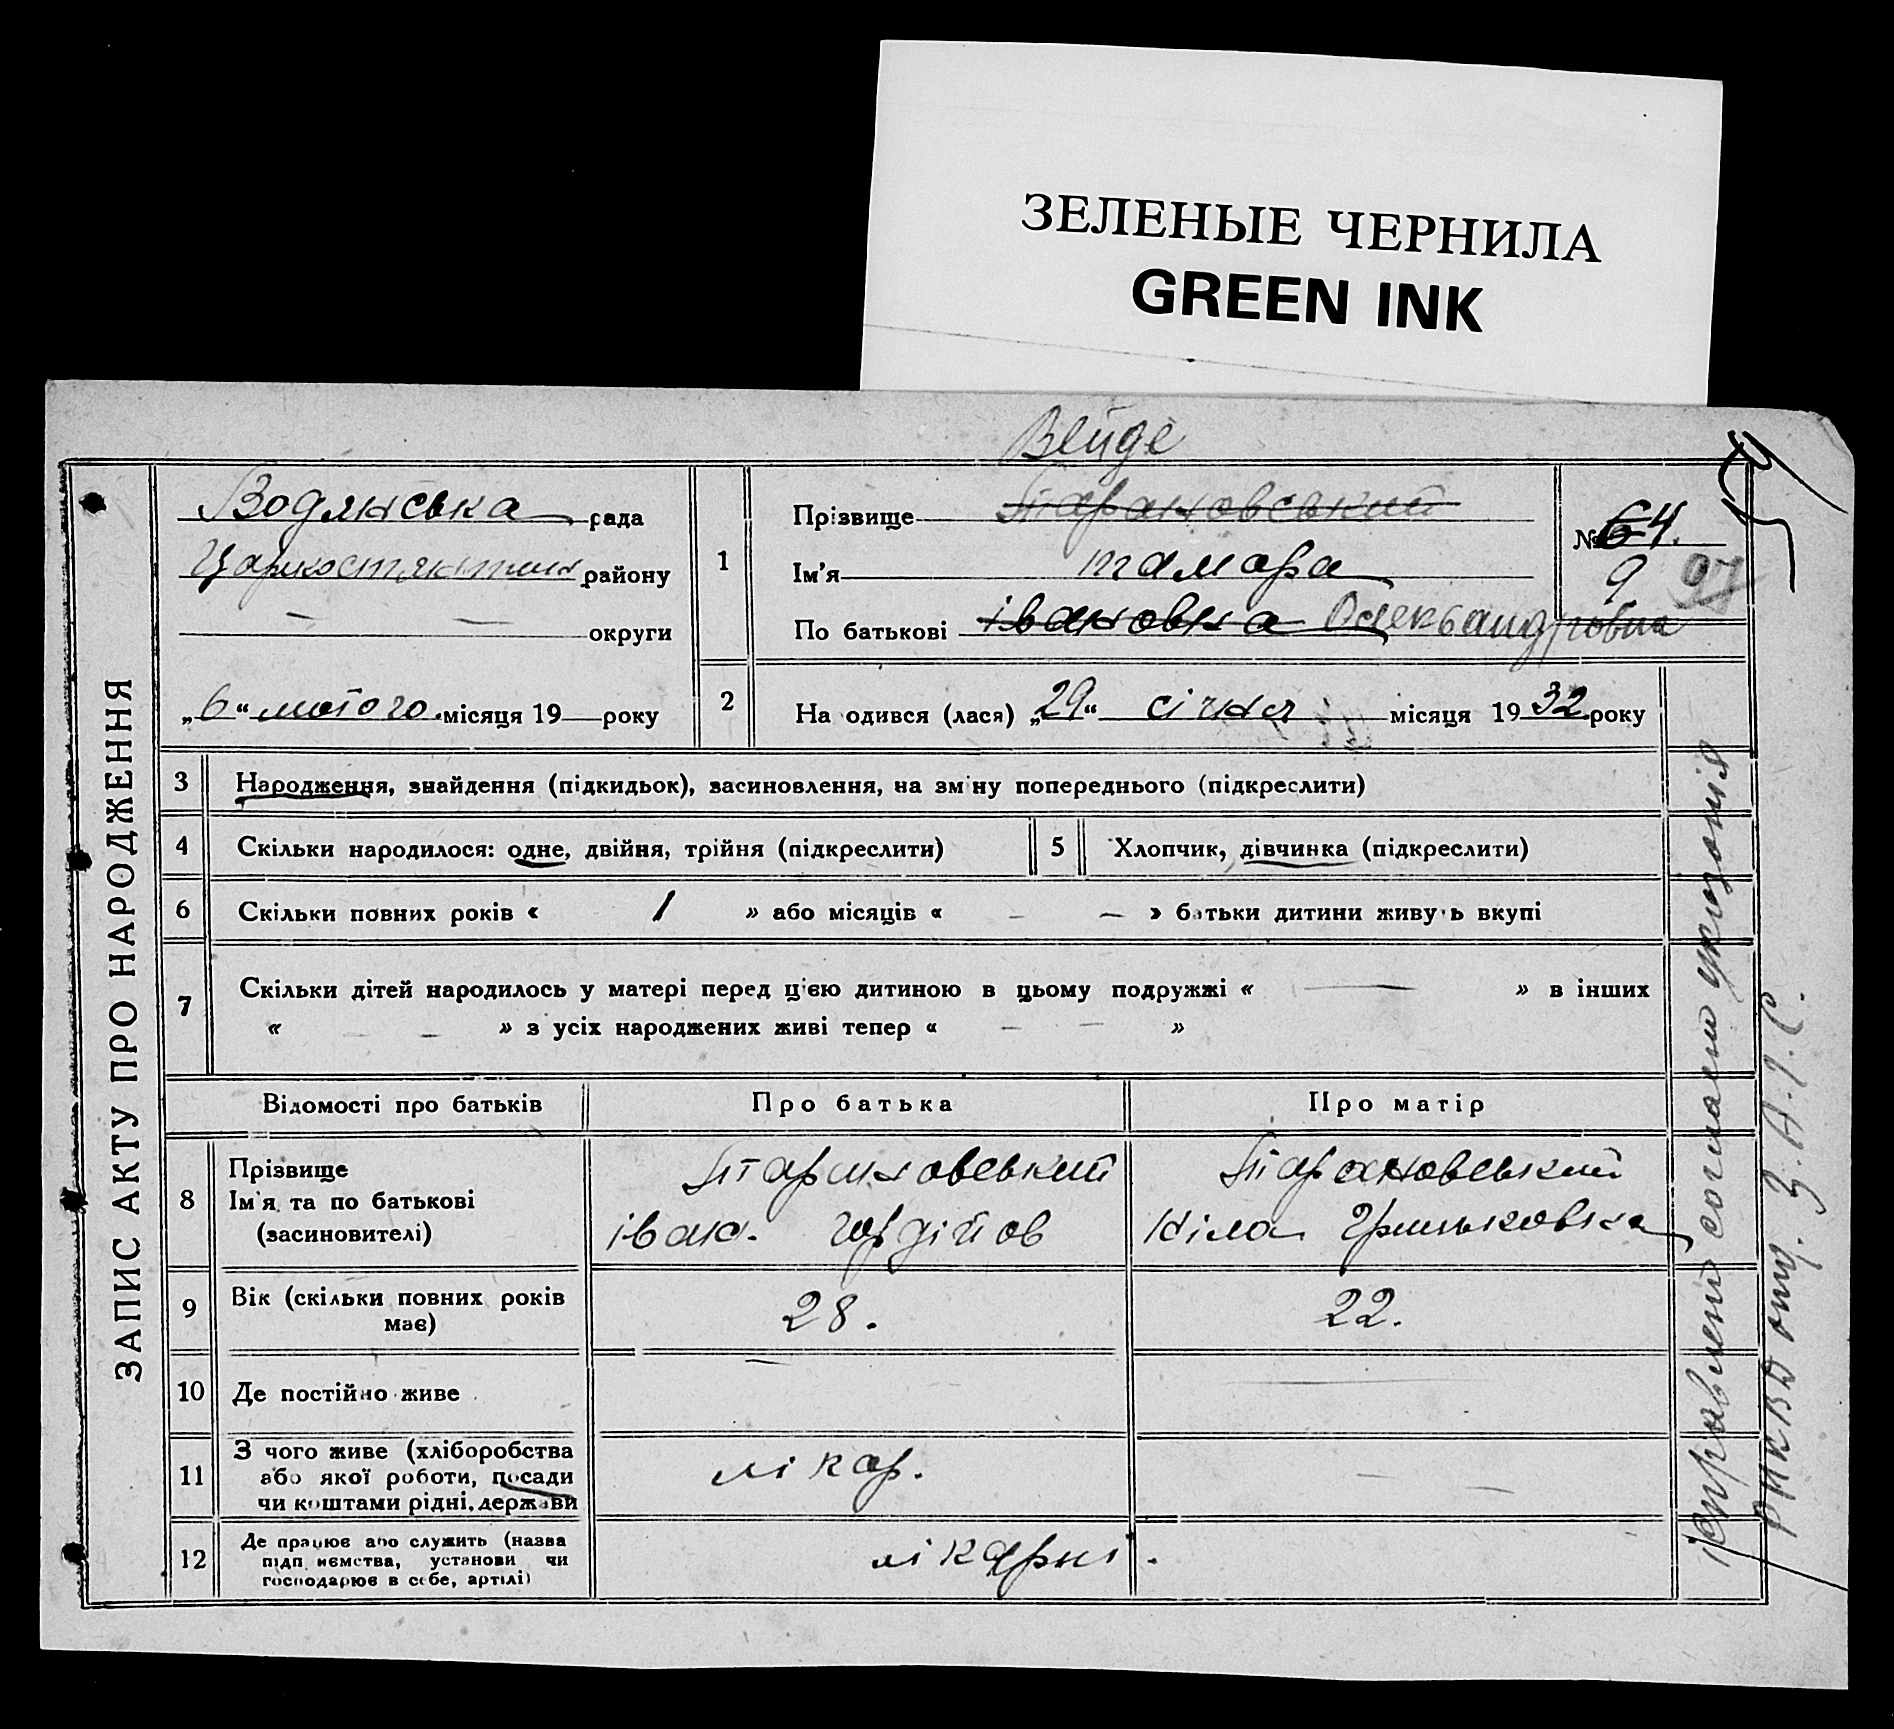 ЗЕЛЕНЫЕ ЧЕРНИЛА
GREEN INK
Вейде
ЗАПИС АКТУ ПРО НАРОДЖЕННЯ
Водянська рада
району
— — округи
„6“ лютого місяця 19 року
1
Прізвище Тарановський
Ім'я тамара
По батькові івановна Олександровна
№ 64.
9
2
На одився (лася) „29“ січня місяця 1932 року
3 Народження, знайдення (підкидьок), засиновлення, на зм ну попереднього (підкреслити)
4 Скільки народилося: одне, двійня, трійня (підкреслити)
5 Хлопчик, дівчинка (підкреслити)
6 Скільки повних років « 1 » або місяців « — — » батьки дитини живуть вкупі
7 Скільки дітей народилось у матері перед цією дитиною в цьому подружжі « — » в інших
« — — » з усіх народжених живі тепер « — — »
Відомості про батьків
Про батька
Про матір
8 Прізвище
Ім'я та по батькові
(засиновителі)
Тарановський
іван. Гордійов
Тарановський
Ніла
9 Вік (скільки повних років
має)
28.
22.
10 Де постійно живе
—
—
11 З чого живе (хліборобства
або якої роботи, посади
чи коштами рідні, держави
лікар.
— —
12 Де працює або служить (назва
підп иємства, установи чи
господарює в себе, артілі)
лікарні.
ісправлені согласно указонія
РНКВД отд. З.А.Г.С.